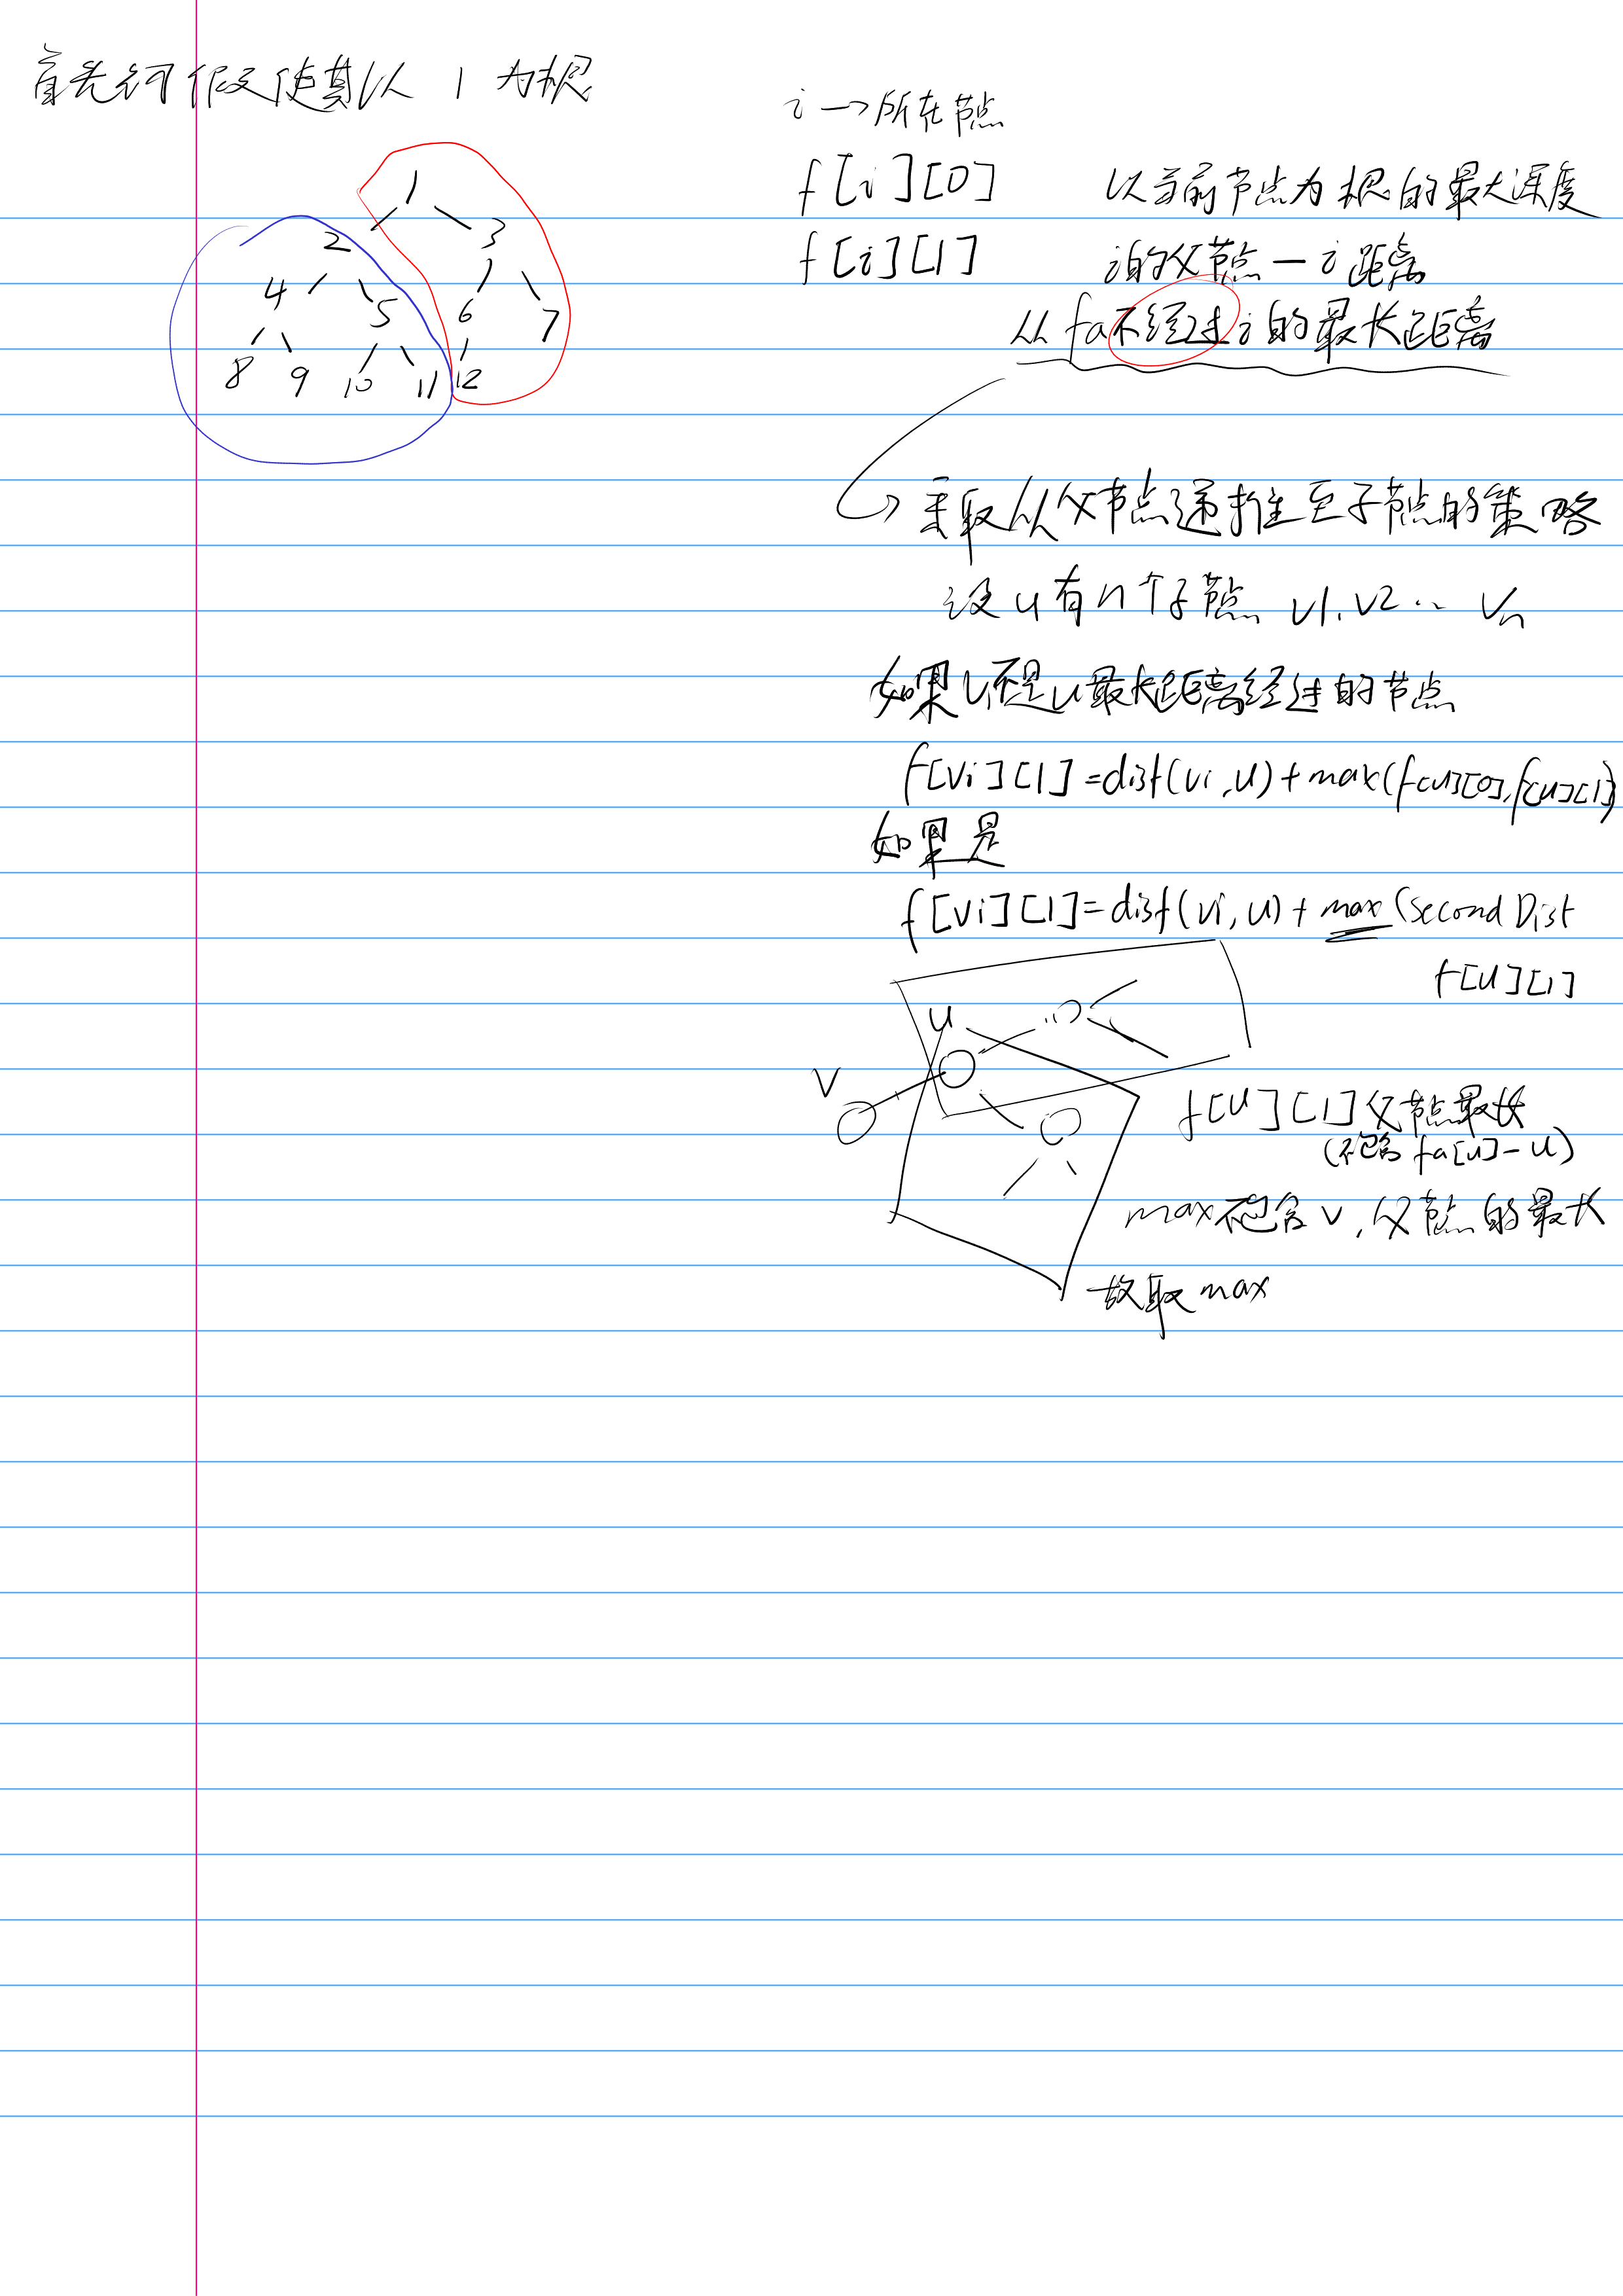 首先可假使其以 1 为根
1
2 3
4 5 6 7
8 9 10 11 12
i→所在节点
f[i][0] 以当前节点为根的最大深度
f[i][1] i的父节点—i距离
从fa不经过i的最长距离
采取从父节点递推至子节点的策略
设u有n个子节点 v1.v2.. vn
如果vi不是u最长距离经过的节点
f[vi][1]=dist(vi,u)+max(f[u][0],f[u][1])
如果是
f[vi][1]=dist(vi,u)+max(Second Dist
f[u][1]
u
v
f[u][1]父节点最长
(不包含 fa[u]-u)
max不包含v,父节点的最长
故取max